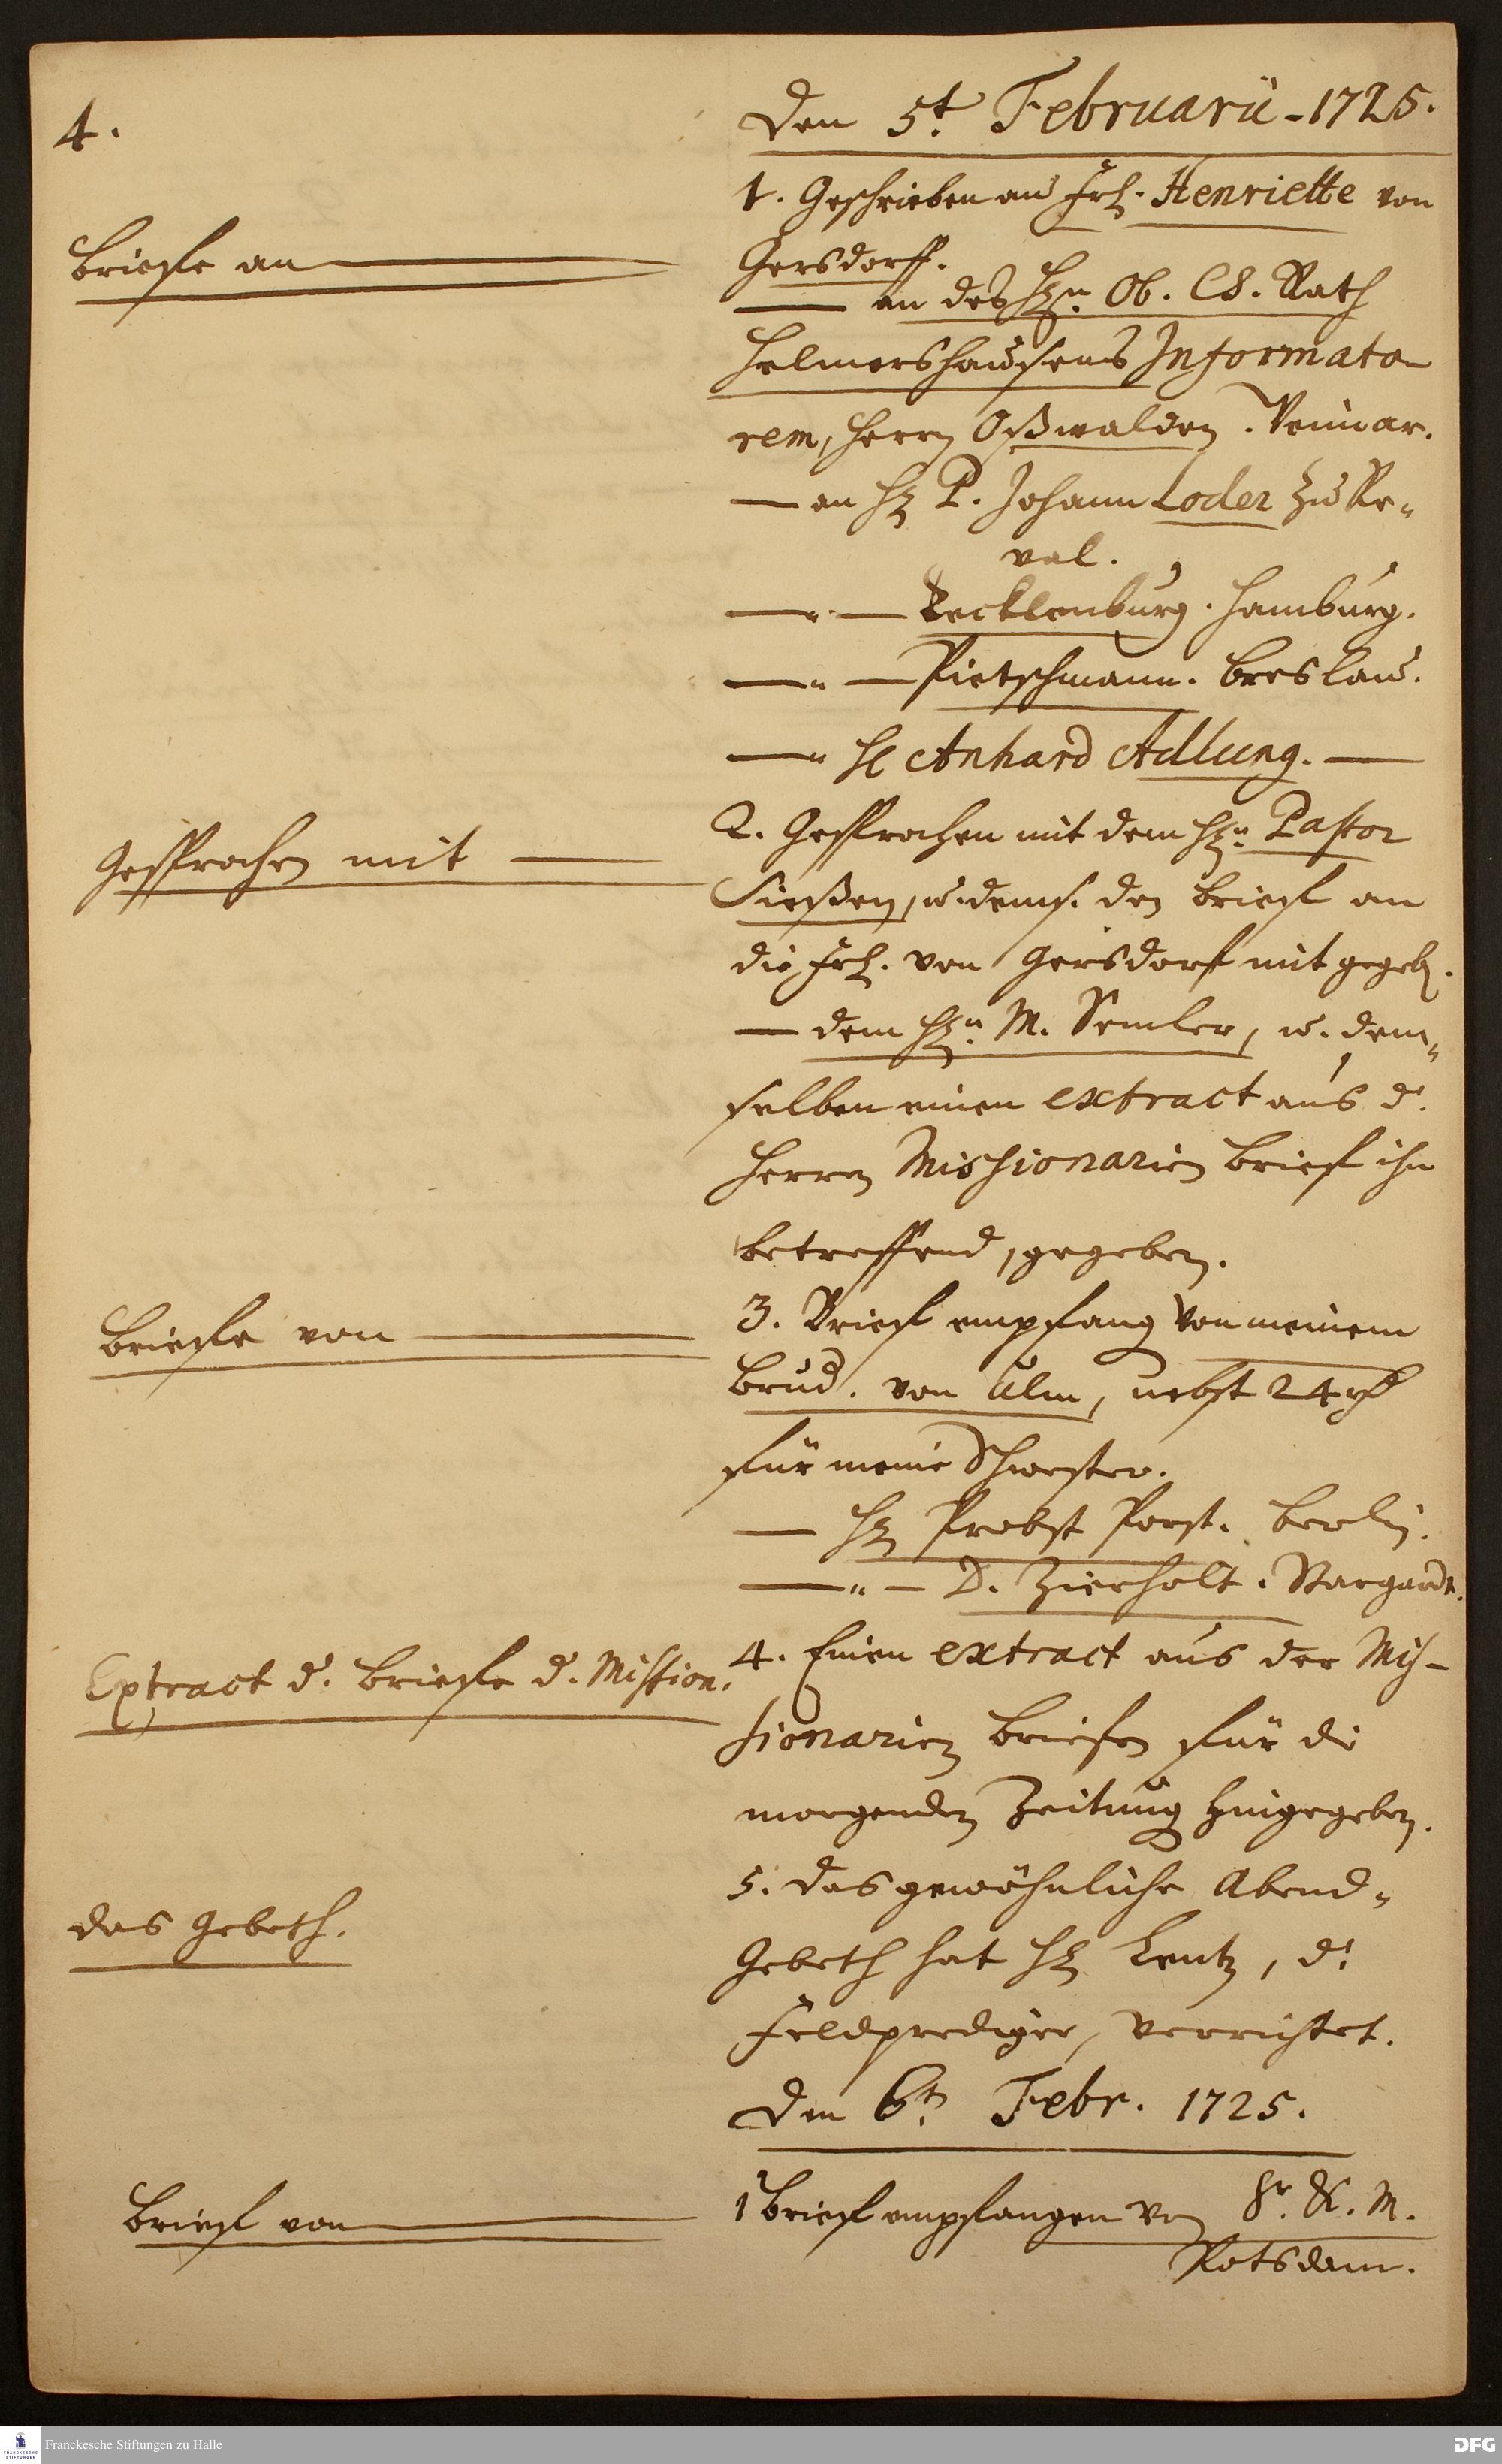 4.
Den 5.t Februarii - 1725.
1. Geschrieben an Frl. Henriette von
Briefe an
Gersdorff.
— an des Hrn. Ob. CS. Rath
Helmershausens Informato-
rem, Herrn Oßwalden. Weimar.
— an Hr. P. Johann Loder zu Re-
val.
— " — Tecklenburg. Hamburg.
— " — Pietschmann. Breslau.
— " H Anhard Adlung. —
Gesprochen mit —
2. Gesprochen mit dem Hrn. Pastor
Sießen, u. dems. den Brief an
die Frl. von Gersdorf mit gegeb.
— dem Hrn. M. Semler, u. dem-
selben einen extract aus d.
Herren Missionarien Brief ihn
betreffend, gegeben.
Briefe von
3. Brief empfang von meinem
Brud. von Ulm, nebst 24 rth
für meine Schwester.
— Hr. Probst Porst. Berlin.
— " — D. Zierholt. Stargardt.
Extract d. Briefe d. Mission.
4. Einen extract aus der Mis-
sionarien Briefen für die
morgenden Zeitung hingegeben.
5. das gewöhnliche Abend-
das Gebeth.
Gebeth hat Hr. Lentz, d.
Feldprediger, verrichtet.
Den 6.t Febr. 1725.
Brief von
1 Brief empfangen von Sr. K. M.
Potsdam.
Franckesche Stiftungen zu Halle
DFG